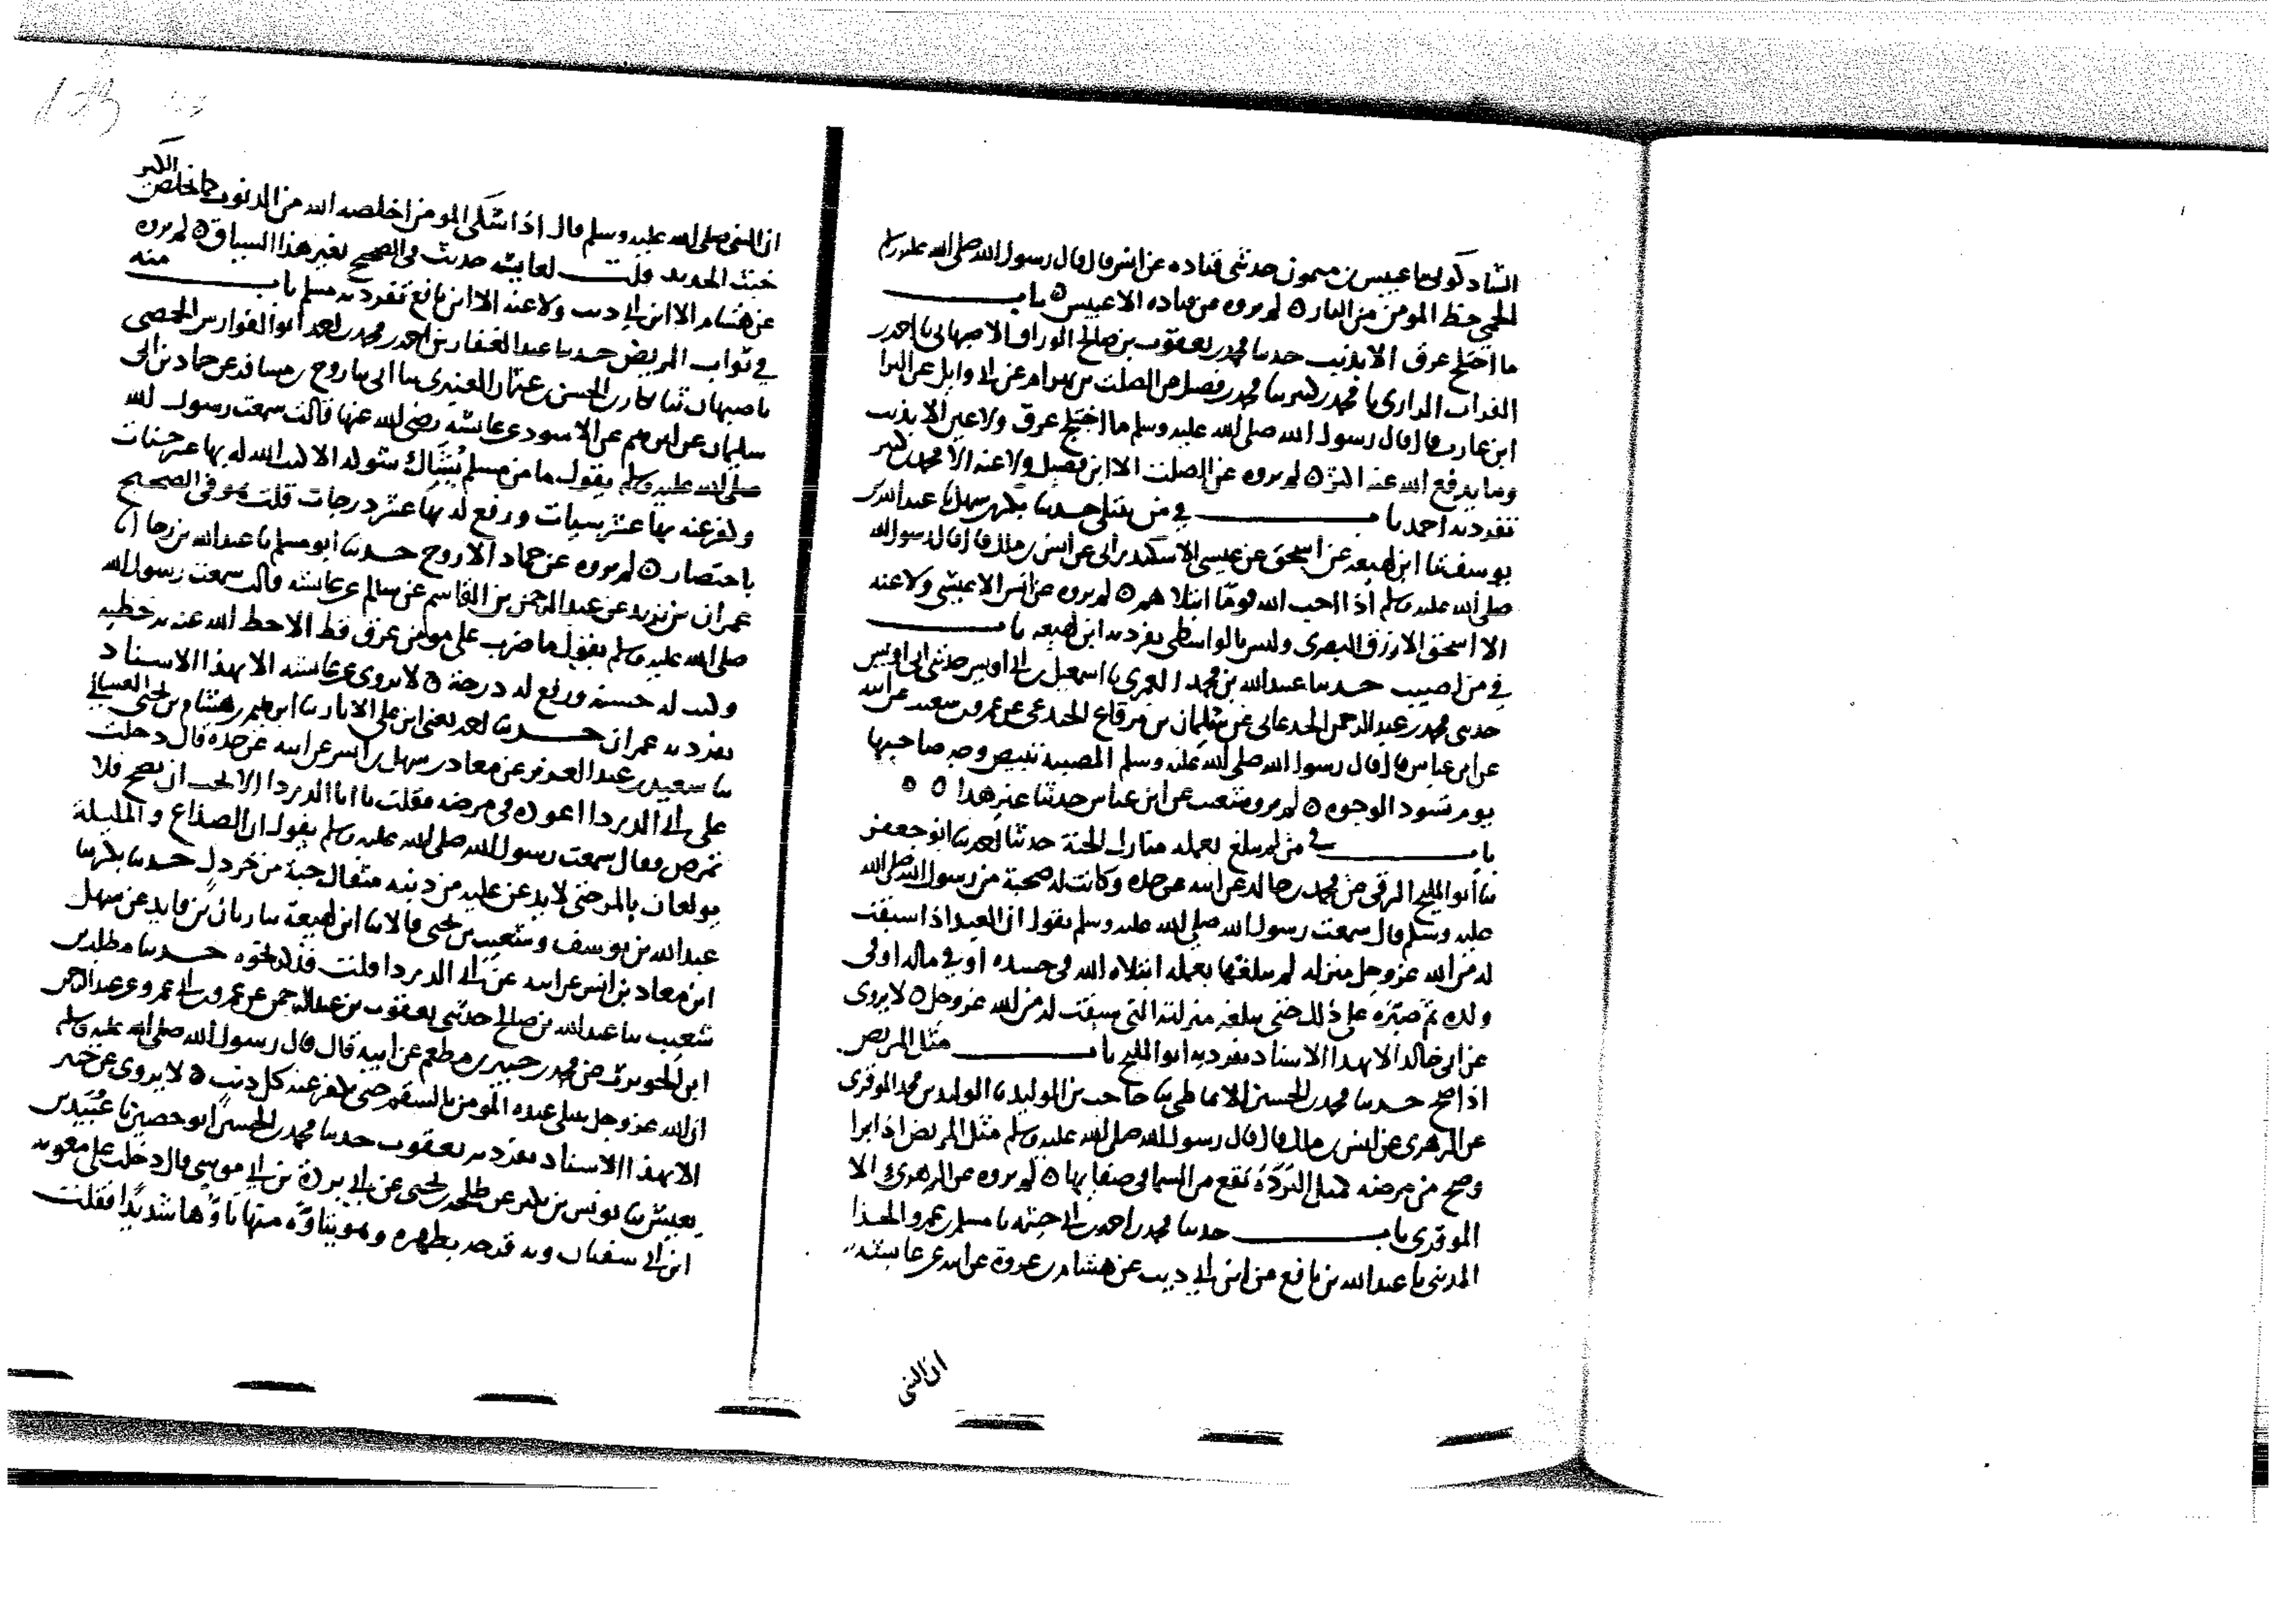 الشادكونى سا عبيس بن ميمون حدثنى قتاده عن انس قال قال رسول الله صلى الله عليه وسلم
الحمى حظ المومن من النار ٥ لم يروه عن قتاده الا عبيس ٥ باب
ما اختلج عرق الا بذنب حدثنا محمد بن يعقوب بن صالح الوراق الاصبهانى نا احمد بن
الفرات الرازى نا محمد بن كثير نا محمد بن فضيل عن الصلت بن بهرام عن ابى وايل عن البرا
ابن عازب قال قال رسول الله صلى الله عليه وسلم ما اختلج عرق ولا عين الا بذنب
وما يدفع الله عنه اكثر ٥ لم يروه عن الصلت الا ابن فضيل ولا عنه الا محمد بن كثير
تفرد به احمد باب في من يبتلى حدثنا بكر بن سهل نا عبد الله بن
يوسف ثنا ابن لهيعه عن اسحق عن عيسى الاسكندرانى عن انس بن ملك قال قال رسول الله
صلى الله عليه وسلم اذا احب الله قوما ابتلاهم ٥ لم يروه عن انس الا عيسى ولا عنه
الا اسحق الازرق البصرى وليس بالواسطى تفرد به ابن لهيعه باب
في من اصيب حدثنا عبد الله بن محمد العمرى نا اسمعيل بن ابى اويس حدثنى ابى اويس
حدثنى محمد بن عبد الرحمن الجدعانى عن سليمان بن مرقاع الجندعى عن عمرو بن سعيد عن ابيه
عن ابن عباس قال قال رسول الله صلى الله عليه وسلم المصيبه تبيض وجه صاحبها
يوم تسود الوجوه ٥ لم يرو شعيب عن ابن عباس حدثنا غير هذا ٥ ٥
باب في من لم يبلغ بعمله منازل الجنة حدثنا احمد نا ابو جعفر
نا ابو المليح الرقى عن محمد بن خالد عن ابيه عن جده وكانت له صحبة من رسول الله صلى الله
عليه وسلم قال سمعت رسول الله صلى الله عليه وسلم يقول ان العبد اذا سبقت
له من الله عز وجل منزله لم يبلغها بعمله ابتلاه الله فى جسده او في ماله او فى
ولده ثم صبره على ذلك حتى يبلغه منزلته التى سبقت له من الله عز وجل ٥ لا يروى
عن ابى خالد الا بهذا الاسناد تفرد به ابو المليح باب مثل المريض
اذا صح حدثنا محمد بن الحسين الانماطى نا حاجب بن الوليد نا الوليد بن محمد الموقرى
عن الزهرى عن انس بن مالك قال قال رسول الله صلى الله عليه وسلم مثل المريض اذا برا
وصح من مرضه كمثل البردة تقع من السما فى صفايها ٥ لم يروه عن الزهرى الا
الموقرى باب حدثنا محمد بن احمد بن ابى خيثمه نا مسلم بن عمرو الحذا
المدينى نا عبد الله بن نافع عن ابن ابى ذيب عن هشام بن عروة عن ابيه عن عايشه
ان النبى
ان النبى صلى الله عليه وسلم قال اذا اشتكى المومن اخلصه الله من الذنوب كما يخلص الكير
خبث الحديد قلت لعايشه حديث فى الصحيح بغير هذا السياق ٥ لم يروه
عن هشام الا ابن ابى ذيب ولا عنه الا ابن نافع تفرد به مسلم باب منه
في ثواب المريض حدثنا عبد الغفار بن احمد بن محمد بن احمد ابو الفوارس الحمصى
باصبهان ثنا بكار بن الحسن بن عثمان العنبرى نا ابى نا روح بن مسافر عن حماد بن ابى
سليمان عن ابرهيم عن الاسود عن عايشة رضى الله عنها قالت سمعت رسول الله
صلى الله عليه وسلم يقول ما من مسلم يشاك شوكه الا كتب الله له بها عشر حسنات
وكفر عنه بها عشر سيات ورفع له بها عشر درجات قلت هو فى الصحيح
باختصار ٥ لم يروه عن حماد الا روح حدثنا ابو مسلم نا عبد الله بن رجا نا
عمران بن يزيد عن عبد الرحمن بن القاسم عن سالم عن عايشه قالت سمعت رسول الله
صلى الله عليه وسلم يقول ما ضرب على مومن عرق قط الا حط الله عنه به خطيه
وكتب له حسنه ورفع له درجة ٥ لا يروى عن عايشه الا بهذا الاسناد
تفرد به عمران حدثنا احمد يعنى ابن على الابار نا ابرهيم بن هشام بن يحيى الغسانى
نا سعيد بن عبد العزيز عن معاذ بن سهل بن انس عن ابيه عن جده قال دخلت
على ابى الدرداء اعوده فى مرضه فقلت يا ابا الدردا الا تحب ان تصح فلا
تمرض فقال سمعت رسول الله صلى الله عليه وسلم يقول ان الصداع والمليلة
يولعان بالمومن حتى لا يدعن عليه من ذنبه مثقال حبة من خردل حدثنا بكر نا
عبد الله بن يوسف وشعيب بن يحيى قالا نا ابن لهيعة نا زبان بن فايد عن سهل
ابن معاذ بن انس عن ابيه عن ابى الدردا قلت فذكر نحوه حدثنا مطلب بن
شعيب نا عبد الله بن صالح حدثنى يعقوب بن عبد الرحمن عن عمرو بن ابى عمرو عن عبد الرحمن
ابن الحويرث عن محمد بن جبير بن مطعم عن ابيه قال قال رسول الله صلى الله عليه وسلم
ان الله عز وجل يبتلى عبده المومن بالسقم حتى يكفر عنه كل ذنب ٥ لا يروى عن جبير
الا بهذا الاسناد تفرد به يعقوب حدثنا محمد بن الحسين ابو حصين نا عبيد بن
يعيش نا يونس بن بكير عن طلحة بن يحيى عن ابى بردة بن ابى موسى قال دخلت على معويه
ابن ابى سفيان وبه قرحه بظهره وهو يتاوه منها تاوها شديدا فقلت